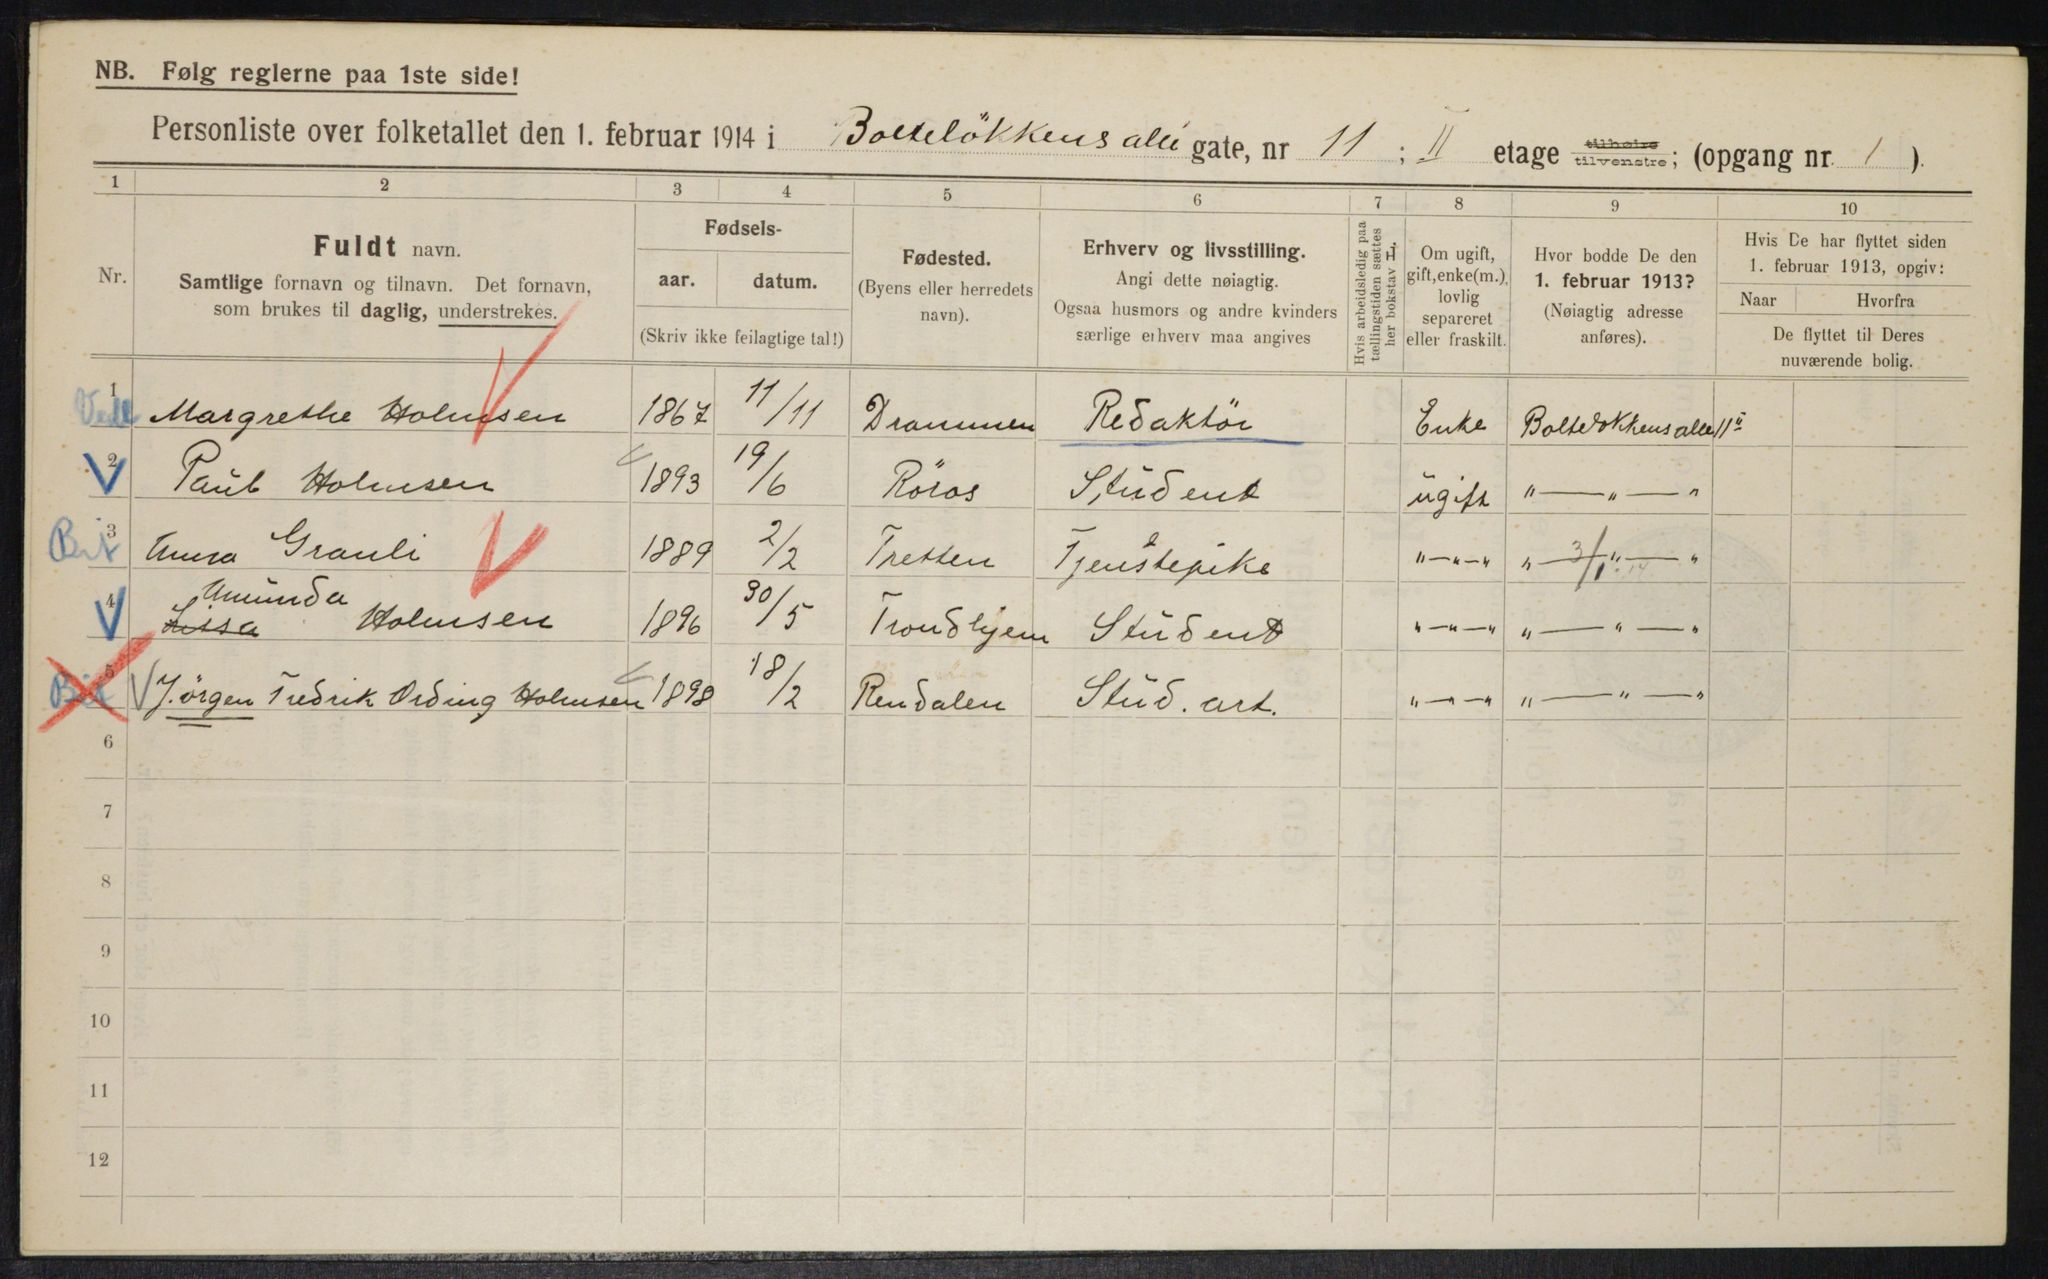 NB. Følg reglerne paa 1ste side!
Personliste over folketallet den 1. februar 1914 i Bolteløkkens allé gate, nr 11 ; II etage tilhøire tilvenstre; (opgang nr. 1 ).
1 2 3 4 5 6 7 8 9 10
Nr.
Fuldt navn.
Samtlige fornavn og tilnavn. Det fornavn,
som brukes til daglig, understrekes.
Fødsels-
aar. datum.
(Skriv ikke feilagtige tal!)
Fødested.
(Byens eller herredets
navn).
Erhverv og livsstilling.
Angi dette nøiagtig.
Ogsaa husmors og andre kvinders
særlige erhverv maa angives
Hvis arbeidsledig paa
tællingstiden sættes
her bokstav L.
Om ugift,
gift, enke(m.),
lovlig
separeret
eller fraskilt.
Hvor bodde De den
1. februar 1913?
(Nøiagtig adresse
anføres).
Hvis De har flyttet siden
1. februar 1913, opgiv:
Naar Hvorfra
De flyttet til Deres
nuværende bolig.
1 Margrethe Holmsen 1867 11/11 Drammen Redaktör Enke Bolteløkkens alle 11 II
2 Paul Holmsen 1893 19/6 Röros Student ugift " — " — "
Bit 3 Anna Grauli 1889 2/2 Tretten Tjenstepike " — " — " " — " — " 3/1. 14
4 Amunda
Lissa Holmsen 1896 30/5 Trondhjem Student " — " — " " — " — "
Bit 5 Jörgen Fredrik Ording Holmsen 1898 18/2 Rendalen Stud. art. " — " — " " — " — "
6
7
8
9
10
11
12